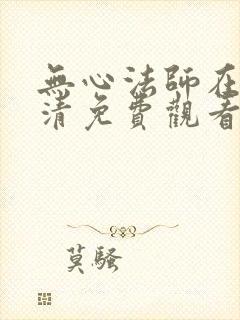 無心法師在
清免費觀看
莫騷